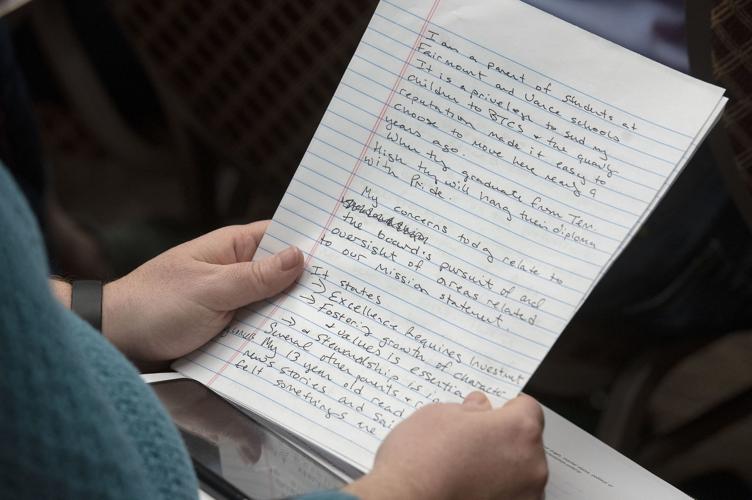 I am a parent of students at
Fairmount and Vance schools
It is a privelege to send my
children to BTCS & the quality
reputation made it easy to
choose to move here nearly 9
years ago.
When they graduate from Ten.
High they will hang their diploma
with Pride.
My concerns today relate to
the board's pursuit of and
oversight of areas related
to our mission statement.
It states
→ Excellence Requires Investment
→ Fostering growth of characte
& values is essential
→ & Stewardship is
Several other parents &
My 13 year old read
news stories and said
felt somethings